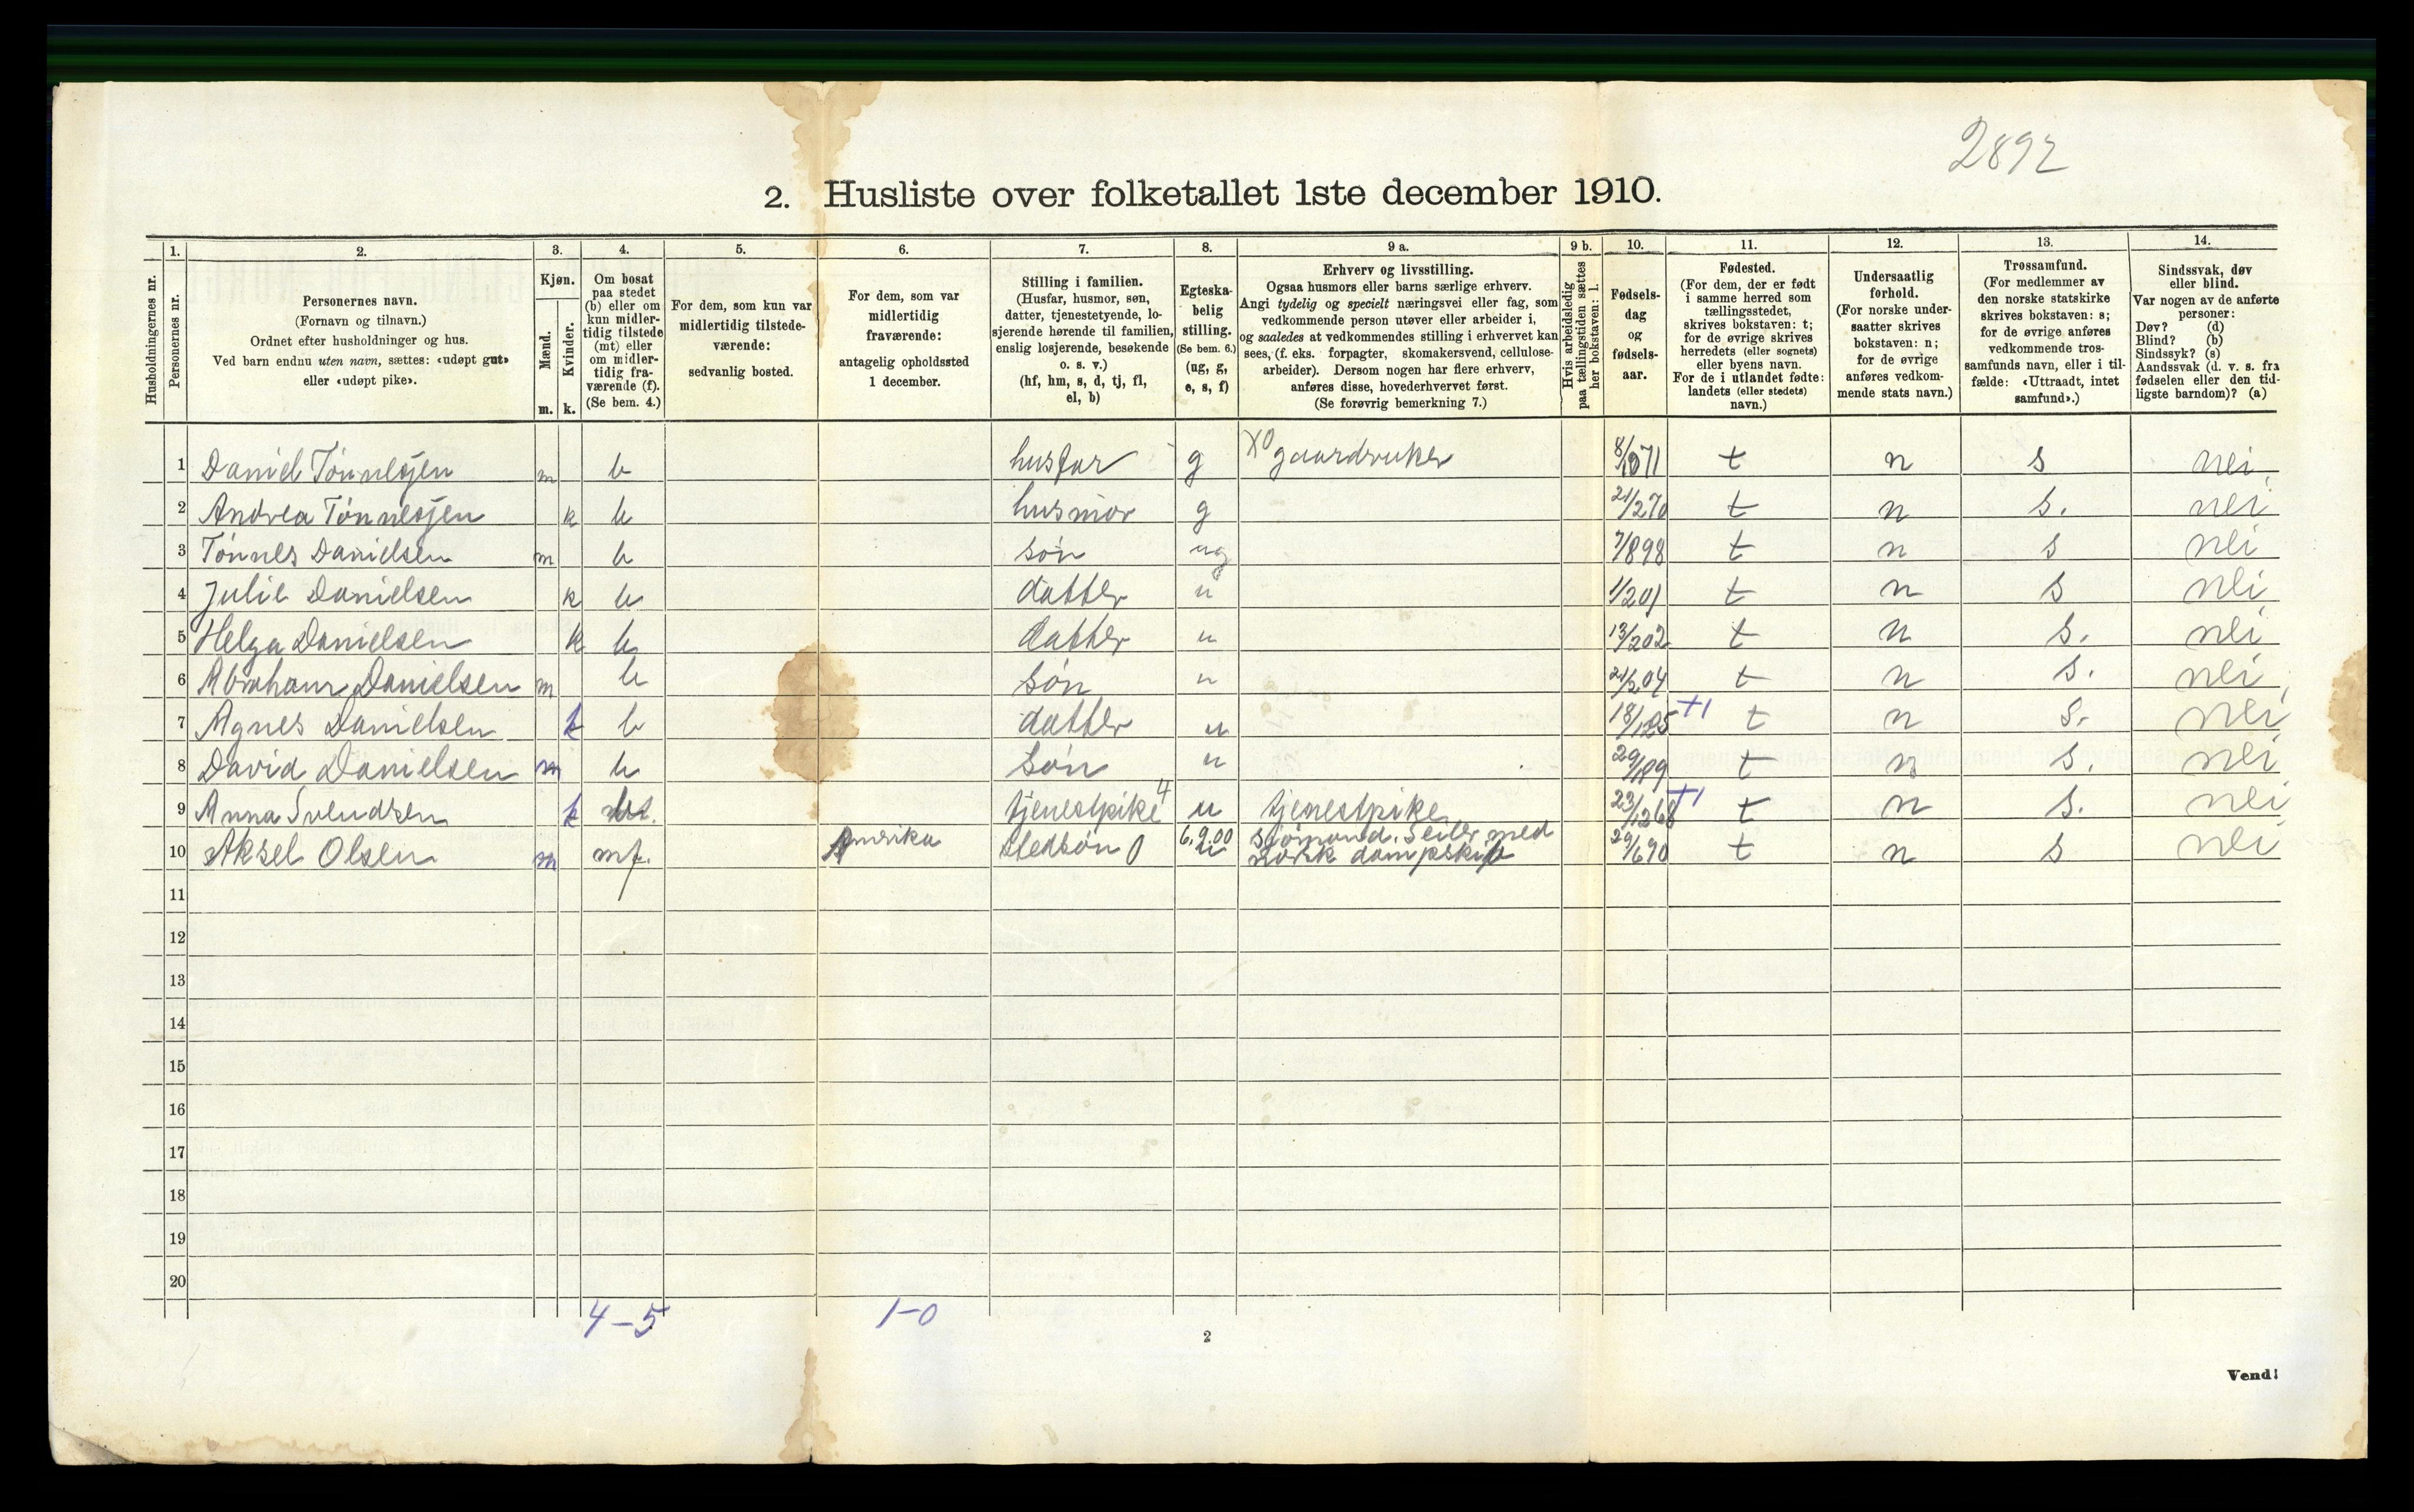 2892
2. Husliste over folketallet 1ste december 1910.
Husholdningernes nr.
1. Personernes nr.
2. Personernes navn. (Fornavn og tilnavn.) Ordnet efter husholdninger og hus. Ved barn endnu uten navn, sættes: «udøpt gut» eller «udøpt pike».
3. Kjøn. Mænd. m. Kvinder. k.
4. Om bosat paa stedet (b) eller om kun midler-tidig tilstede (mt) eller om midler-tidig fra-værende (f). (Se bem. 4.)
5. For dem, som kun var midlertidig tilstede-værende: sedvanlig bosted.
6. For dem, som var midlertidig fraværende: antagelig opholdssted 1 december.
7. Stilling i familien. (Husfar, husmor, søn, datter, tjenestetyende, lo-sjerende hørende til familien, enslig losjerende, besøkende o. s. v.) (hf, hm, s, d, tj, fl, el, b)
8. Egteska-belig stilling. (Se bem. 6.) (ug, g, e, s, f)
9 a. Erhverv og livsstilling. Ogsaa husmors eller barns særlige erhverv. Angi tydelig og specielt næringsvei eller fag, som vedkommende person utøver eller arbeider i, og saaledes at vedkommendes stilling i erhvervet kan sees, (f. eks. forpagter, skomakersvend, cellulose-arbeider). Dersom nogen har flere erhverv, anføres disse, hovederhvervet først. (Se forøvrig bemerkning 7.)
9 b. Hvis arbeidsledig paa tællingstiden sættes her bokstaven: l.
10. Fødsels-dag og fødsels-aar.
11. Fødested. (For dem, der er født i samme herred som tællingsstedet, skrives bokstaven: t; for de øvrige skrives herredets (eller sognets) eller byens navn. For de i utlandet fødte: landets (eller stedets) navn.)
12. Undersaatlig forhold. (For norske under-saatter skrives bokstaven: n; for de øvrige anføres vedkom-mende stats navn.)
13. Trossamfund. (For medlemmer av den norske statskirke skrives bokstaven: s; for de øvrige anføres vedkommende tros-samfunds navn, eller i til-fælde: «Uttraadt, intet samfund».)
14. Sindssvak, døv eller blind. Var nogen av de anførte personer: Døv? (d) Blind? (b) Sindssyk? (s) Aandssvak (d. v. s. fra fødselen eller den tid-ligste barndom)? (a)
1 Daniel Tönnesjen m b husfar g X0 gaardbruker 8/1071 t n s nei
2 Andrea Tönnesjen k b husmor g 21/270 t n s. nei
3 Tönnes Danielsen m b sön ug 7/898 t n s nei
4 Julie Danielsen k b datter u 1/201 t n s nei
5 Helga Danielsen k b datter u 13/202 t n s. nei
6 Abraham Danielsen m b sön u 21/204 t n s. nei
7 Agnes Danielsen k b datter u 18/125 +1 t n s. nei
8 David Danielsen m b sön u 29/189 t n s. nei
9 Anna Svendsen k tjenestpike 4 u tjenestpike 23/1268 +1 t n s. nei
10 Aksel Olsen m mf. Amerika stedsön 0 6.9.00 u sjömand. Seiler med norsk dampskib 29/690 t n s nei
11
12
13
14
15
16
17
18
19
20
4-5 1-0
2
Vend!